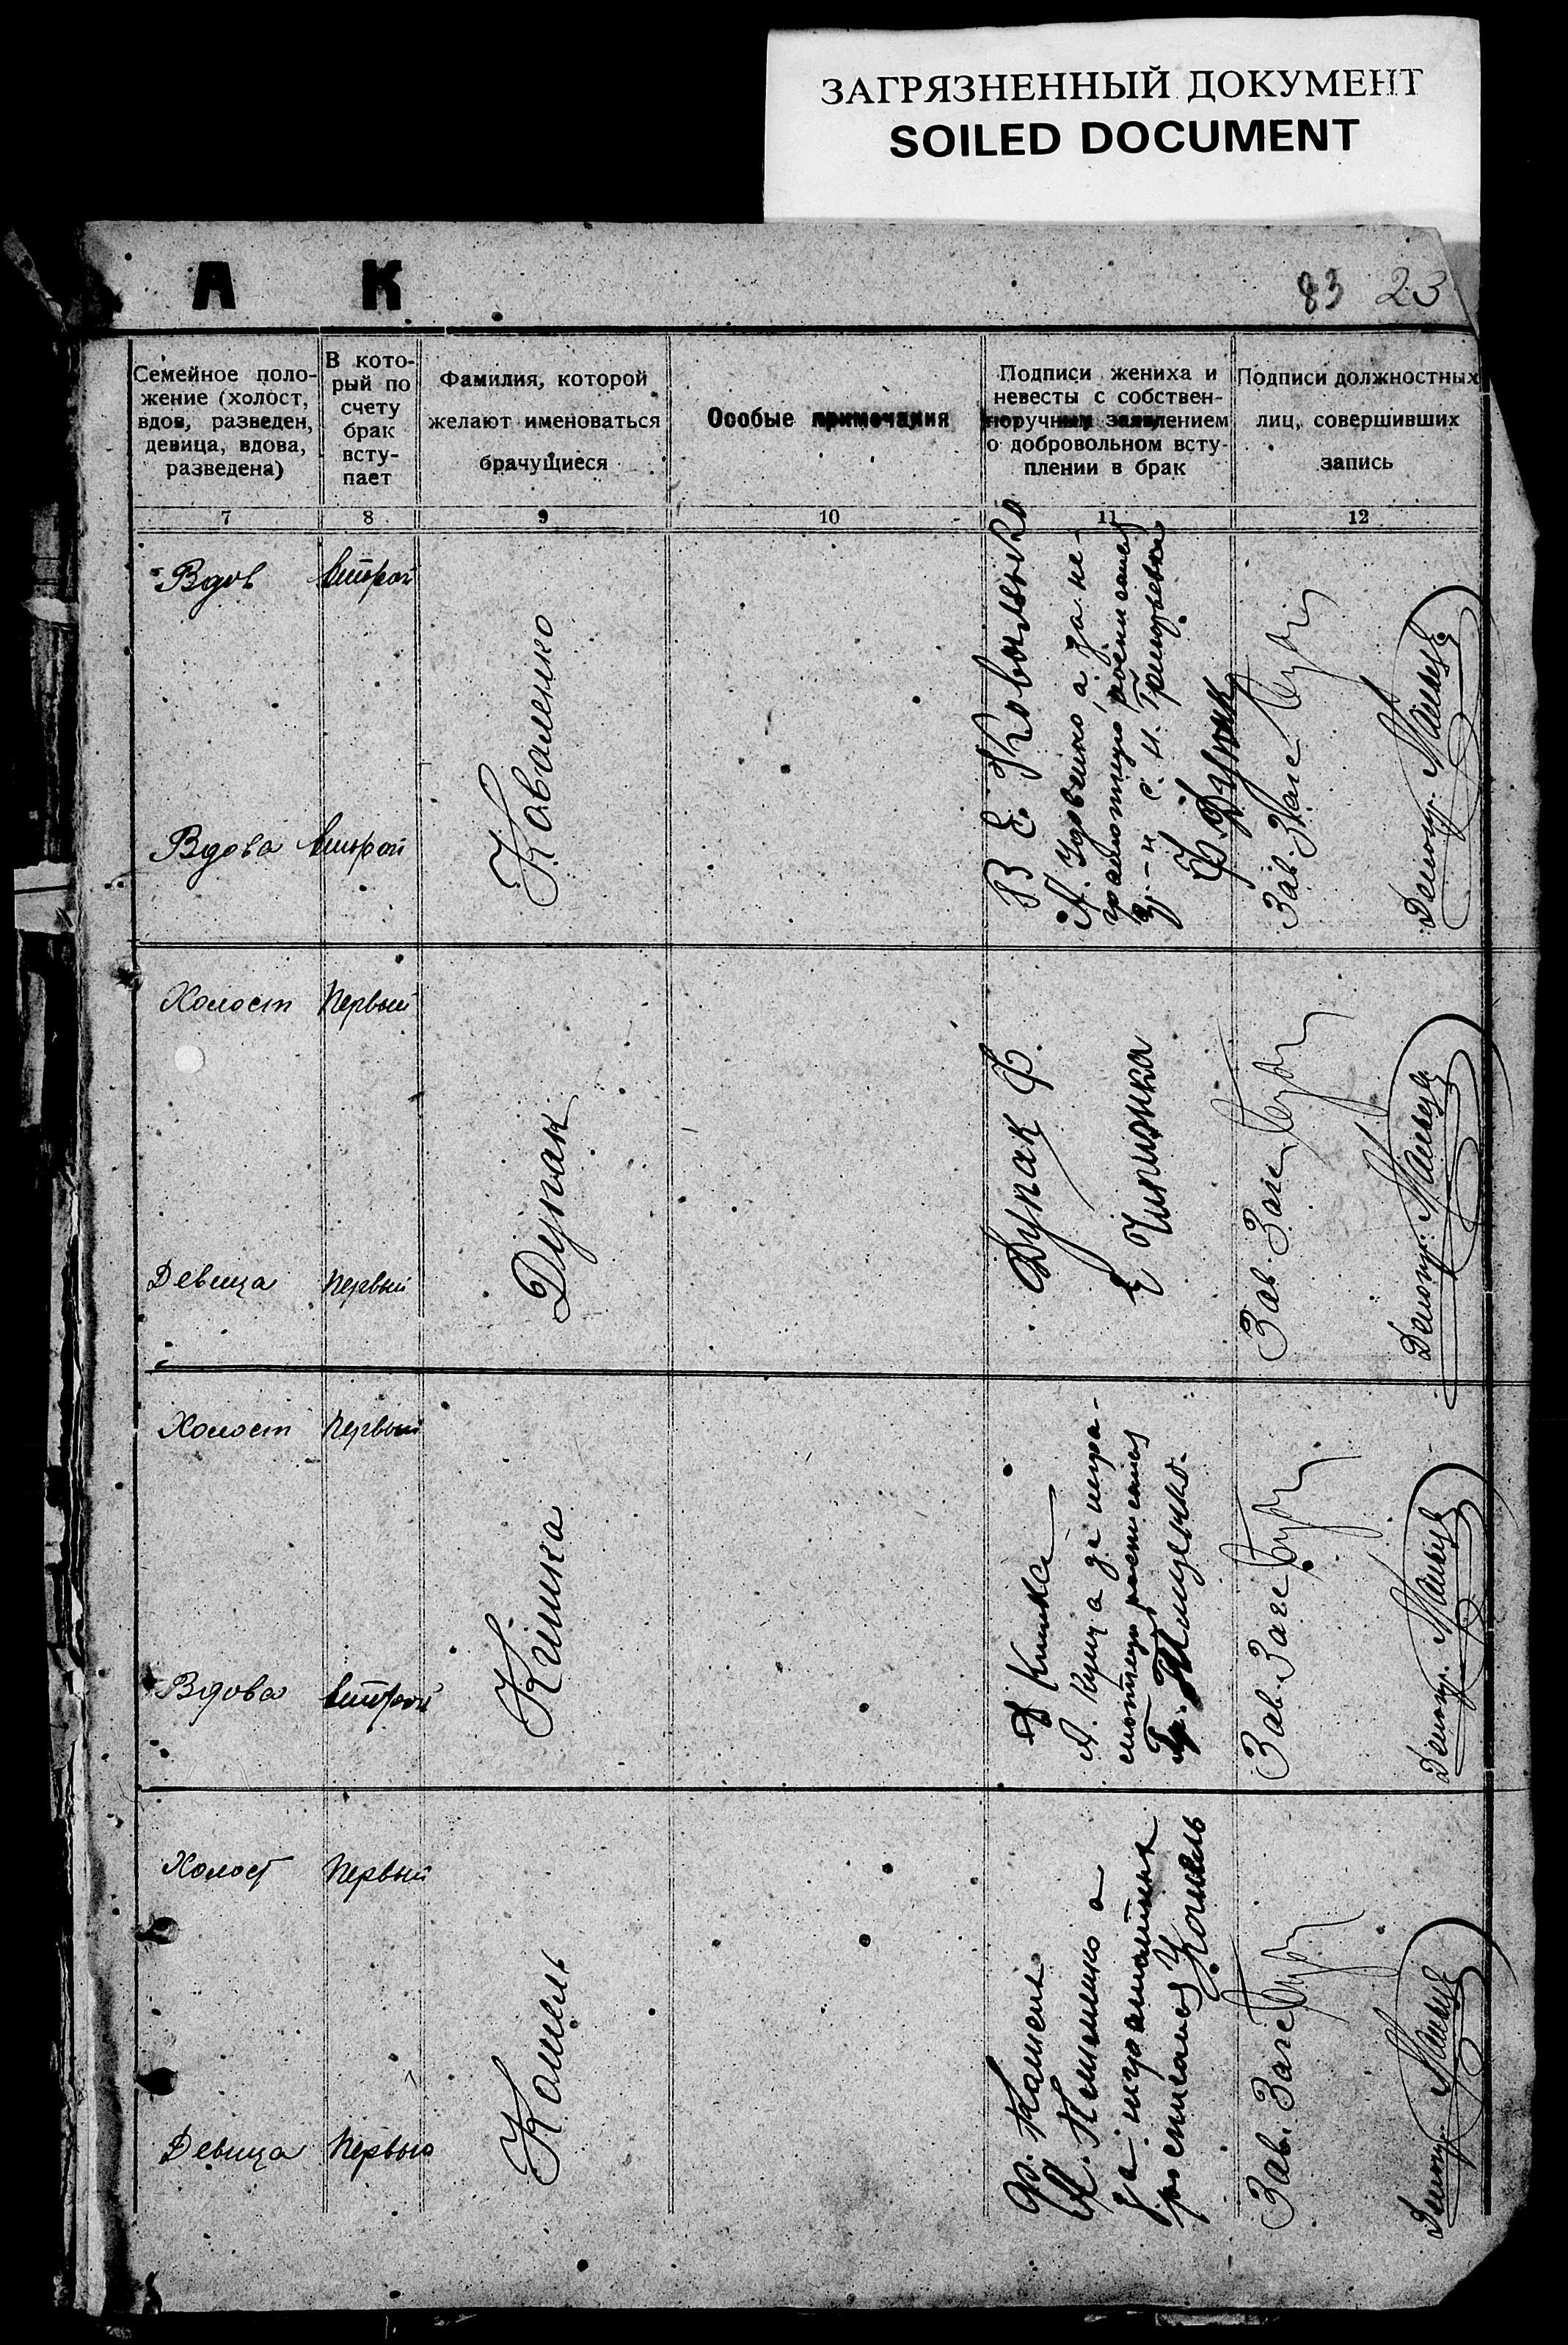 ЗАГРЯЗНЕННЫЙ ДОКУМЕНТ
SOILED DOCUMENT
А К
83 23
Семейное поло-
жение (холост,
вдов, разведен,
девица, вдова,
разведена)
В кото-
рый по
счету
брак
всту-
пает
Фамилия, которой
желают именоваться
брачущиеся
Особые примечания
Подписи жениха и
невесты с собствен-
норучным заявлением
о добровольном всту-
плении в брак
Подписи должностных
лиц, совершивших
запись
7 8 9 10 11 12
Вдов Второй
Вдова Второй
Коваленко
В Е Ковалько
а за не-
грамотную росписался
Ф. Дупак
Зав. Загс
Делопр.
Холост Первый
Девица Первый
Дупак
Дупак Ф.
Е Чирикка
Зав. Загс
Делопр.
Холост Первый
Вдова Второй
Кишка
Кишка
А. Куц а за негра-
мотную росписался
Гр. Тищенко.
Зав. Загс
Делопр.
Холост Первый
Девица Первый
Комель
Ф. Комель
а
за неграмотных
росписался Комель
Зав. Загс
Делопр.